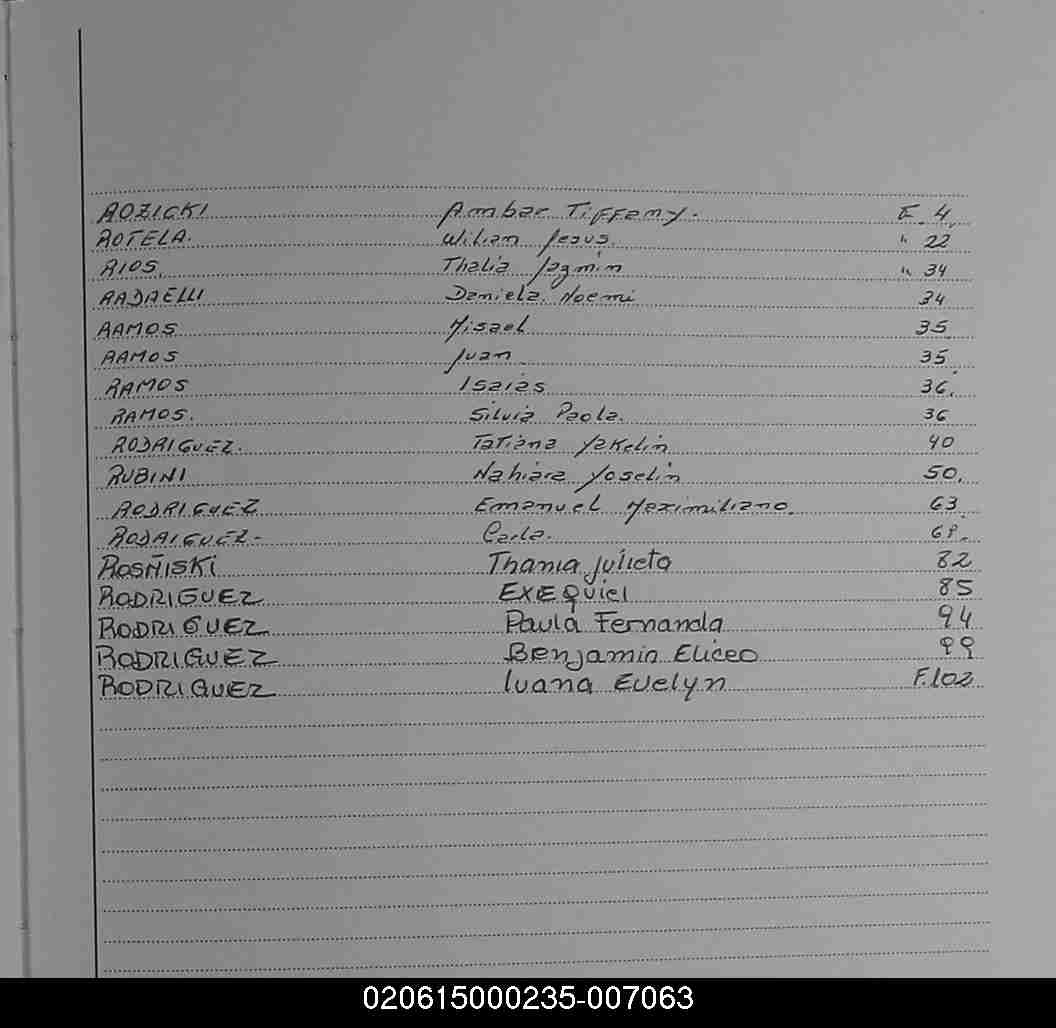 ROZICKI Ambar Tiffany. F. 4.
ROTELA. Wilian Jesus. " 22
RIOS. Thalia Jazmin " 34
RADAELLI Daniela. Noemi 34
RAMOS Misael 35
RAMOS Juan 35
RAMOS Isaias 36.
RAMOS. Silvia Paola. 36
RODRIGUEZ. Tatiana Yakelin 40
RUBINI Nahiara Yoselin 50.
RODRIGUEZ Emanuel Maximiliano. 63
RODRIGUEZ- Carla.
ROSÑISKI Thania Julieta 82
RODRIGUEZ EXEQuiel 85
RODRIGUEZ Paula Fernanda 94
RODRIGUEZ Benjamin Eliceo 99
RODRIGUEZ Ivana Evelyn F.102
020615000235-007063